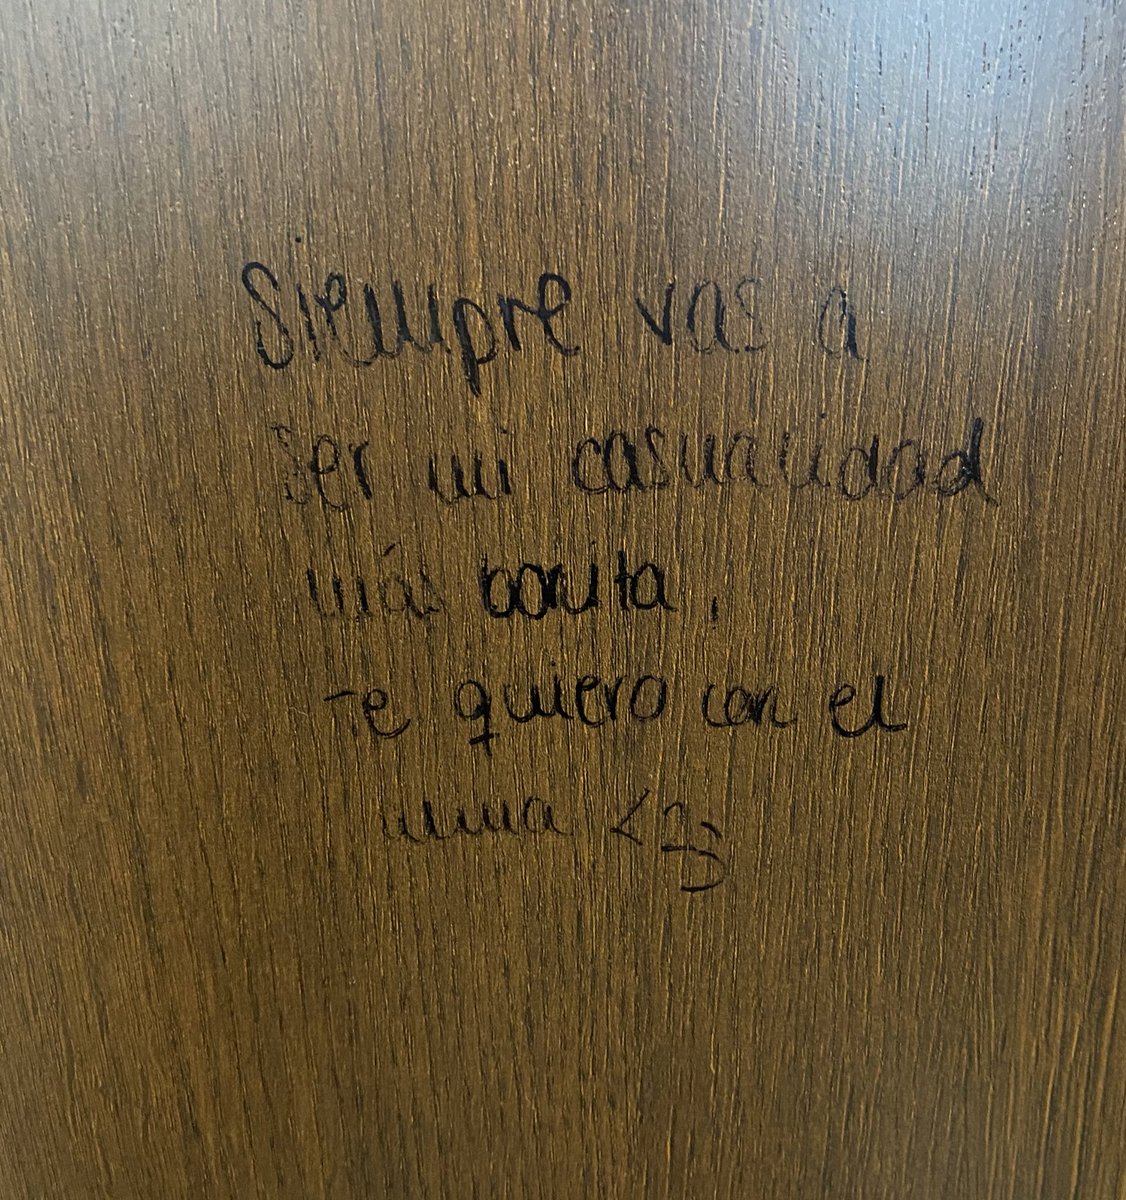 Siempre vas a
ser mi casualidad
más bonita,
te quiero con el
alma <3